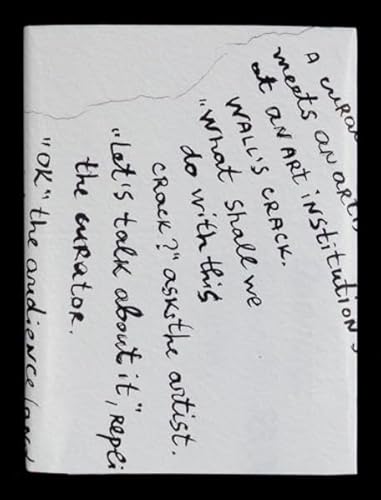 A
meets an
at an art institution's
wall's crack.
"What shall we
do with this
crack?" asks the artist.
"Let's talk about it",
the curator.
"OK" the audience